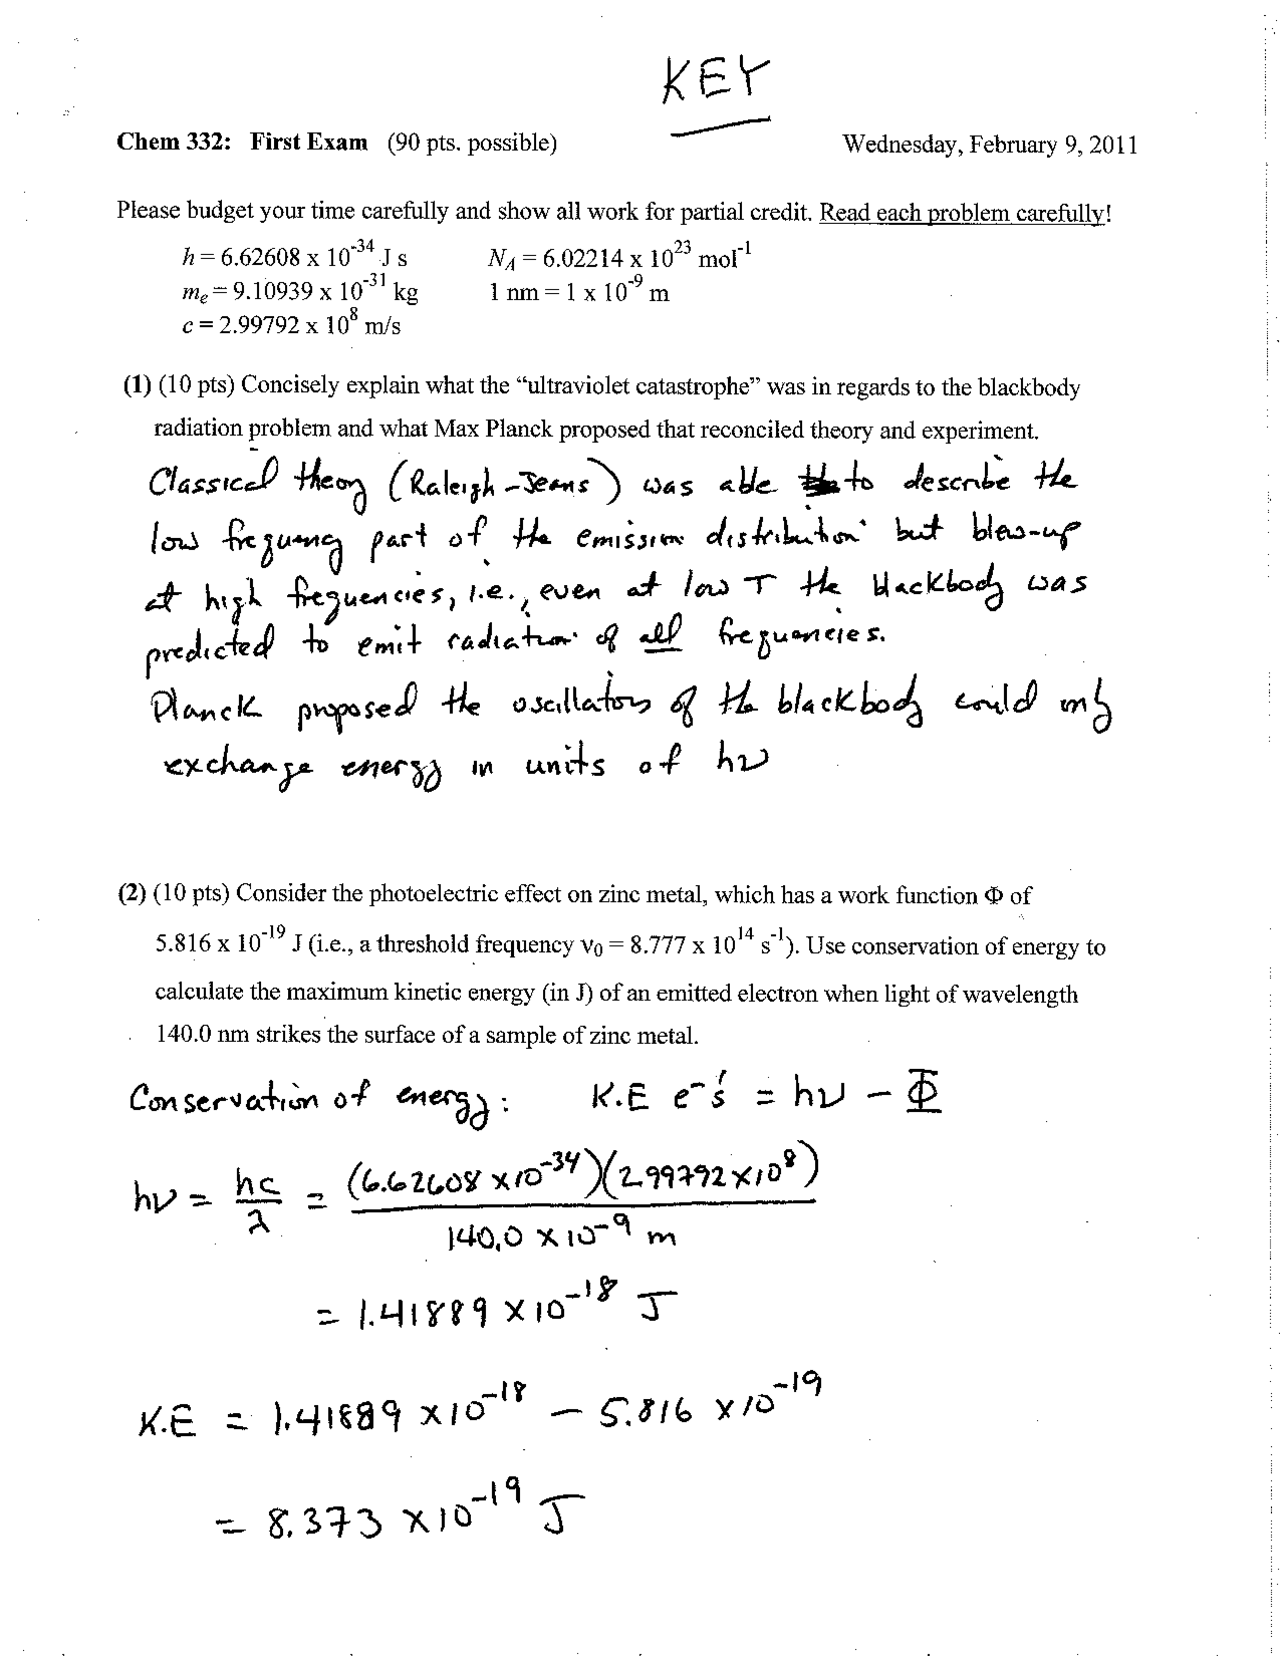 KEY
Chem 332: First Exam (90 pts. possible) Wednesday, February 9, 2011
Please budget your time carefully and show all work for partial credit. Read each problem carefully!
h = 6.62608 x 10⁻³⁴ J s N_A = 6.02214 x 10²³ mol⁻¹
m_e = 9.10939 x 10⁻³¹ kg 1 nm = 1 x 10⁻⁹ m
c = 2.99792 x 10⁸ m/s
(1) (10 pts) Concisely explain what the “ultraviolet catastrophe” was in regards to the blackbody
radiation problem and what Max Planck proposed that reconciled theory and experiment.
Classical theory (Raleigh-Jeans) was able to describe the
low frequency part of the emission distribution but blew-up
at high frequencies, i.e., even at low T the blackbody was
predicted to emit radiation of all frequencies.
Planck proposed the oscillators of the blackbody could only
exchange energy in units of hν
(2) (10 pts) Consider the photoelectric effect on zinc metal, which has a work function Φ of
5.816 x 10⁻¹⁹ J (i.e., a threshold frequency ν₀ = 8.777 x 10¹⁴ s⁻¹). Use conservation of energy to
calculate the maximum kinetic energy (in J) of an emitted electron when light of wavelength
140.0 nm strikes the surface of a sample of zinc metal.
Conservation of energy: K.E e⁻'s = hν - Φ
hν = hc/λ = (6.62608 x 10⁻³⁴)(2.99792 x 10⁸) / 140.0 x 10⁻⁹ m
= 1.41889 x 10⁻¹⁸ J
K.E = 1.41889 x 10⁻¹⁸ - 5.816 x 10⁻¹⁹
= 8.373 x 10⁻¹⁹ J